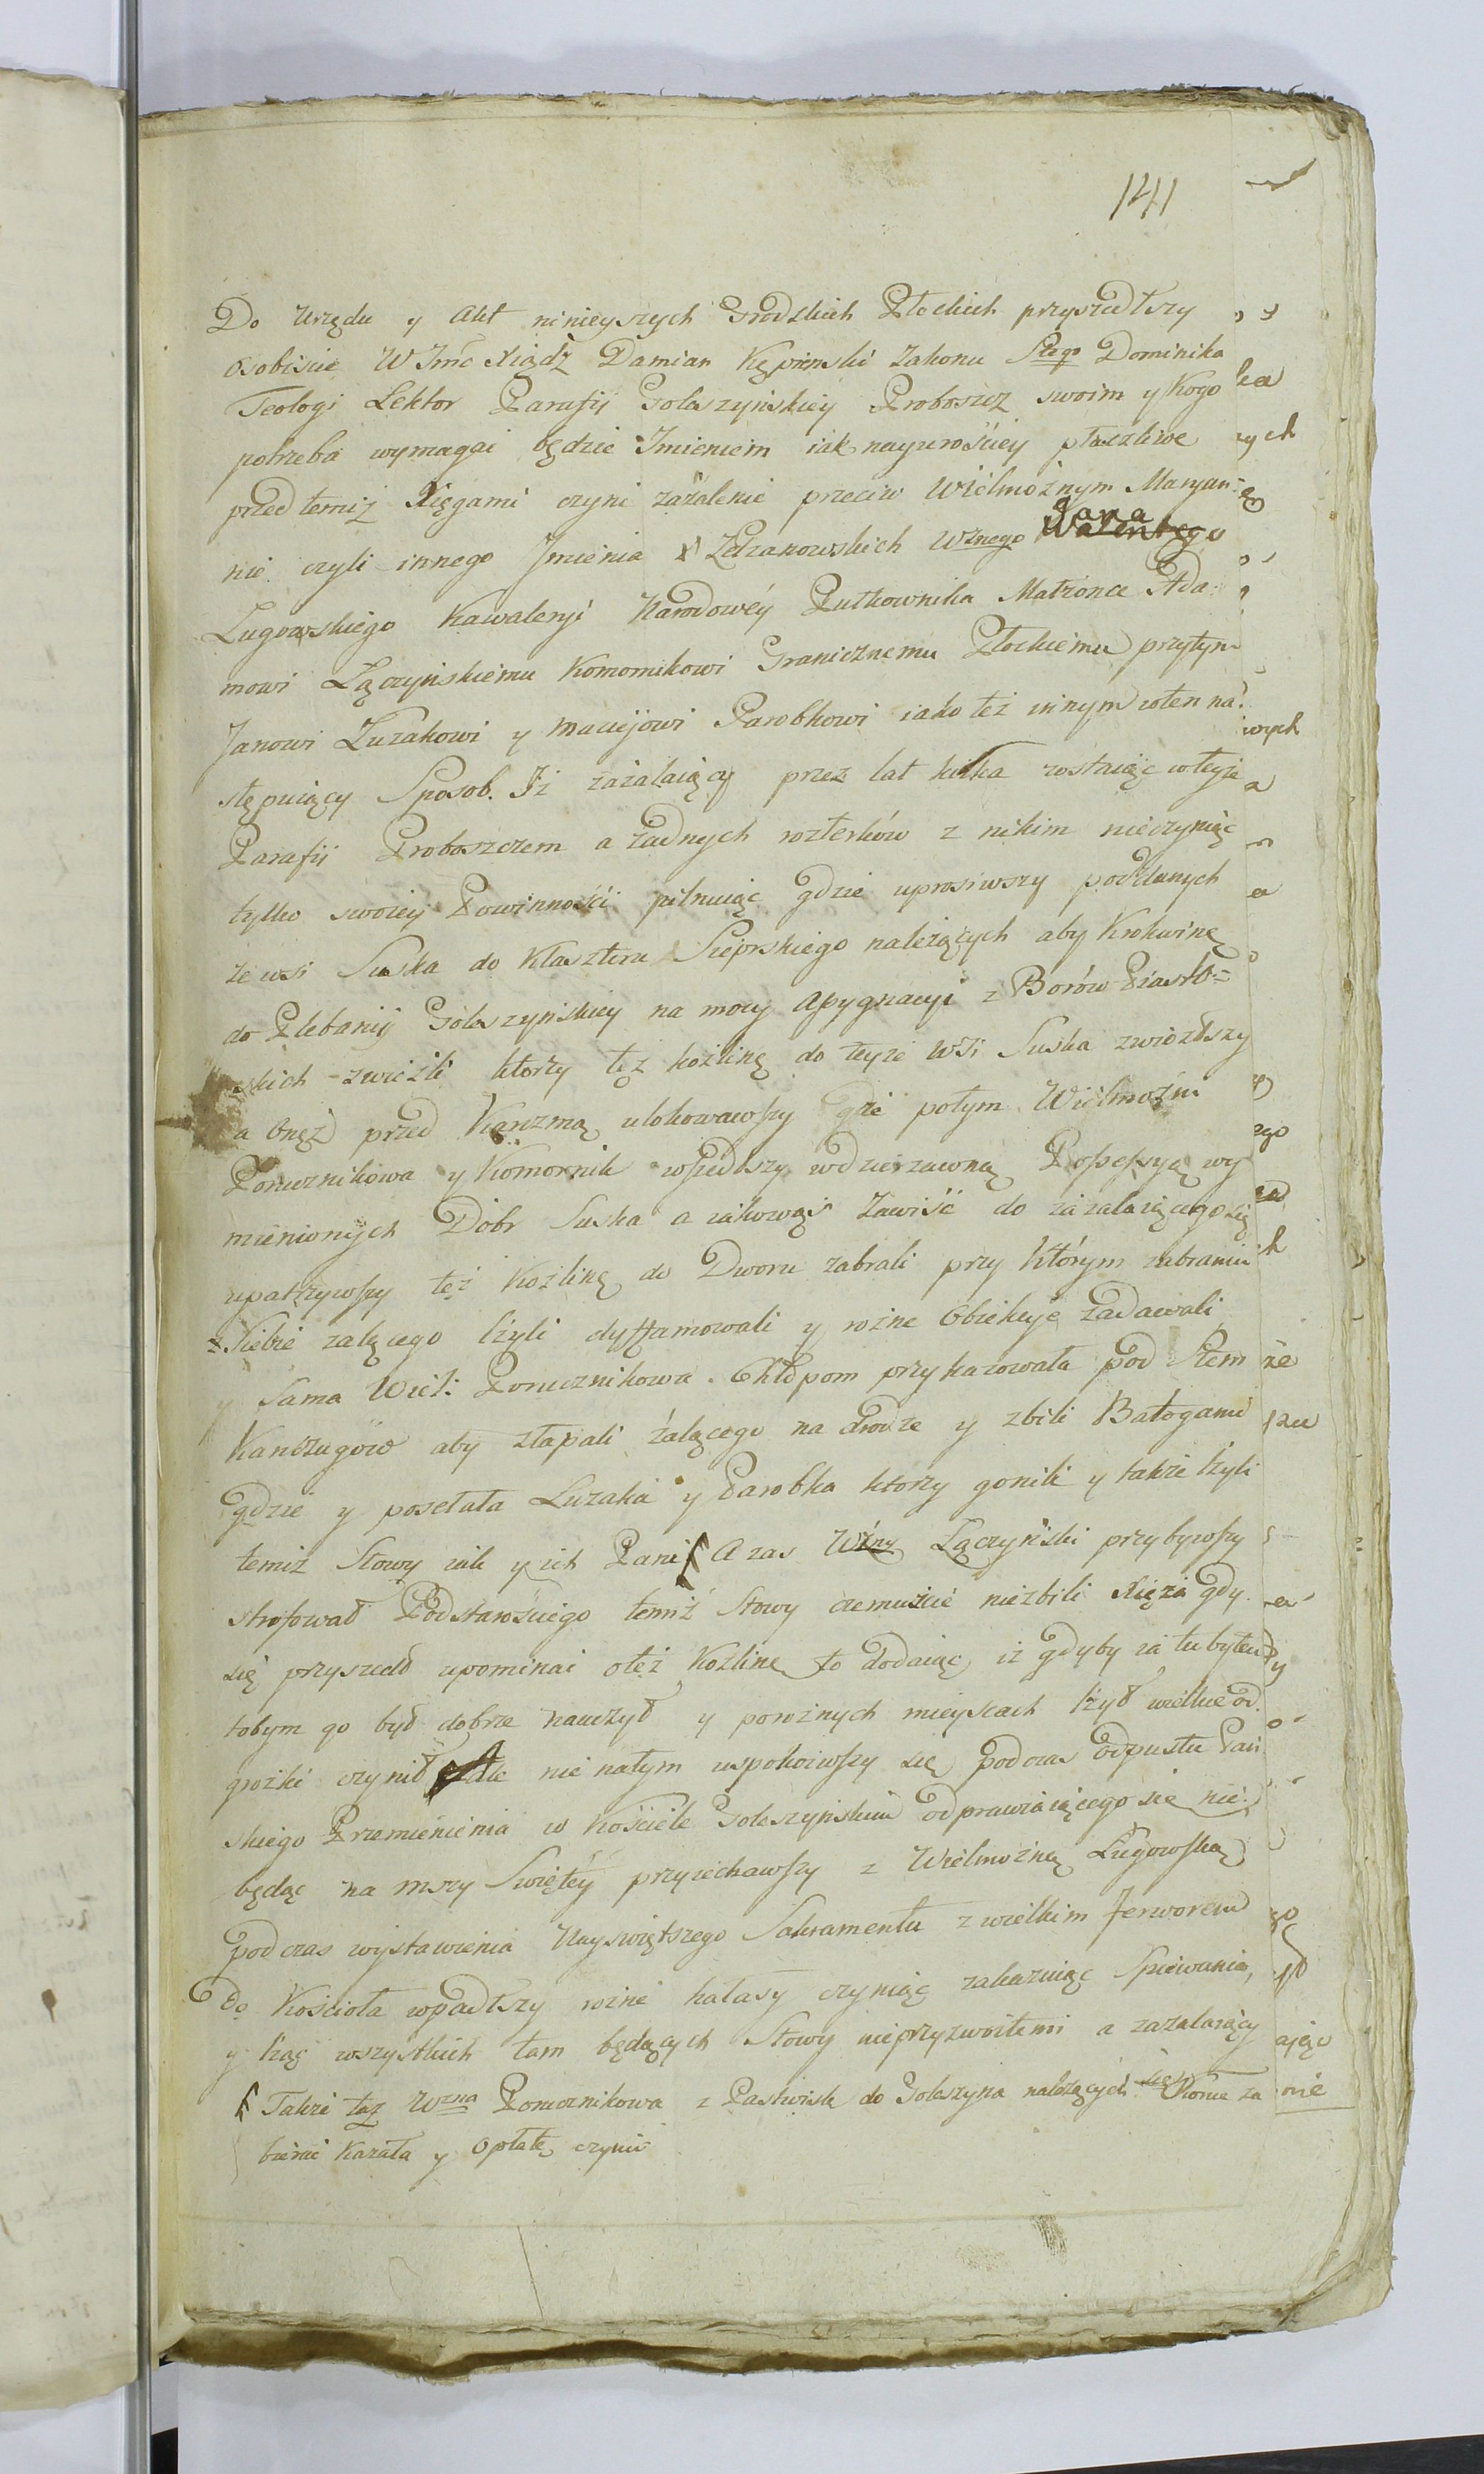 141
Do Urzędu y Akt ninieyszych Grodzkich Płockich przyszedłszy
osobiście WJmć Xiądz Damian Kępienski Zakonu Stego Dominika
Teologi Lektor Parafij Goleszyńskiey Proboszcz swoim y Kogo
potrzeba wymagać będzie Jmieniem iak nayurościey płaczliwe
przed temiż Xięgami czyni zażalenie przeciw Wielmożnym Maryan-
nie czyli innego Jmienia z Zelzanowskich Wznego Jana Walentego
Ługowskiego Kawaleryi Narodowey Pułkownika Matronce Ada-
mowi Łączyńskiemu Komornikowi Granicznemu Płockiemu przytym
Janowi Luzakowi y Maciejowi Parobkowi iako też innym wten na-
stępuiący Sposob. Iż zażalaiący przez lat kilka zostaiąc wteyże
Parafij Proboszczem a żadnych rozterków z nikim nieczyniąc
tylko swoiey Powinności pilnuiąc gdzie uprosiwszy poddanych
ze wsi Suska do Klasztoru Sieprskiego należących aby Krokwinę
do Plebanij Goleszyńskiey na mocy Assygnacyi z Borów Piasto-
skich zwieźli ktorzy tęż koźlinę do teyże Wsi Suska zwiozłszy
a onęż przed Karczmą ulokowawszy gdzie potym Wielmożni
Porucznikowa y Komornik wszedłszy wdzierzawną Possessyą wy
mienionych Dobr Suska a iakowąś Zawiść do zażalaiącego się
upatrzywszy też Koźlinę do Dworu zabrali przy którym zabraniu
Siebie żalącego lżyli dyffamowali y rożne Obiekcye zadawali
y Sama Wiel: Porucznikowa Chłopom przykazowała pod Stem
Kańczugów aby złapali żalącego na drodze y zbili Batogami
gdzie y posełała Luzaka y Parobka ktorzy gonili y także lżyli
temiż Słowy iak y ich Pani A zas Wżny Łączyński przybywszy
strofował Podstarościego temiż Słowy czemuście niezbili Xięża gdy
się przyszedł upominać otęż Koźlinę to dodaiąc iż gdyby ia tu bytem
tobym go był dobrze nauczył y porożnych mieyscach lżył wielkie od-
grożki czynił Ale nie natym uspokoiwszy się podczas odpustu Pań
skiego Przemienienia w Kościele Goleszyńskim odprawiaiącego się nie-
będąc na mszy Swiętey przyiechawszy z Wielmożną Ługowską
podczas wystawienia Nayswiętszego Sakramentu z wielkim ferworem
do Kościoła wpadłszy rożne hałasy czyniąc zakazuiąc Spiewania,
y lżąc wszystkich tam będących Słowy nieprzyzwoitemi a zażalaiący
Także taż Wzna Porucznikowa z Pastwisk do Goleszyna należących się Konie za
bierać Kazała y Opłatę czynić